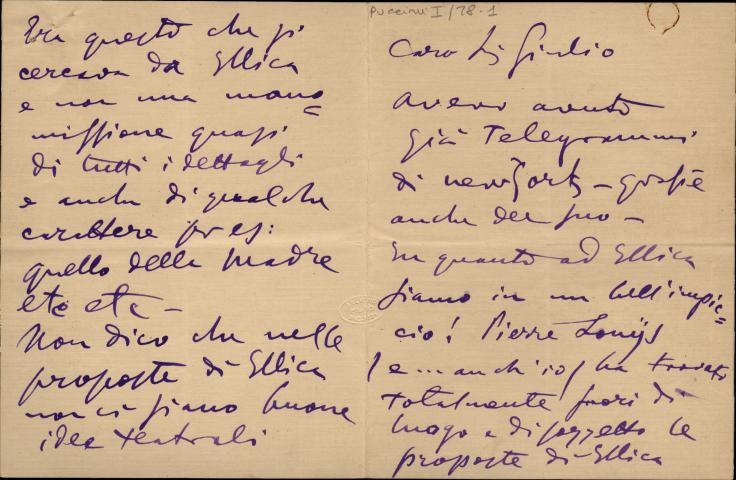 Puccini I/78-1
Caro Sig Giulio
Avevo avuto
già Telegrammi
di new York – grazie
anche del suo –
In quanto ad Illica
siamo in un bell'impic=
cio! Pierre Louÿs
(e... anch'io) ha trovato
totalmente fuori di
luogo e di soggetto le
proposte di Illica
Era questo che si
cercava da Illica
e non una mano=
missione quasi
di tutti i dettagli
e anche di qualche
carattere per es:
quello della madre
etc etc –
Non dico che nelle
proposte di Illica
non ci siano buone
idee teatrali